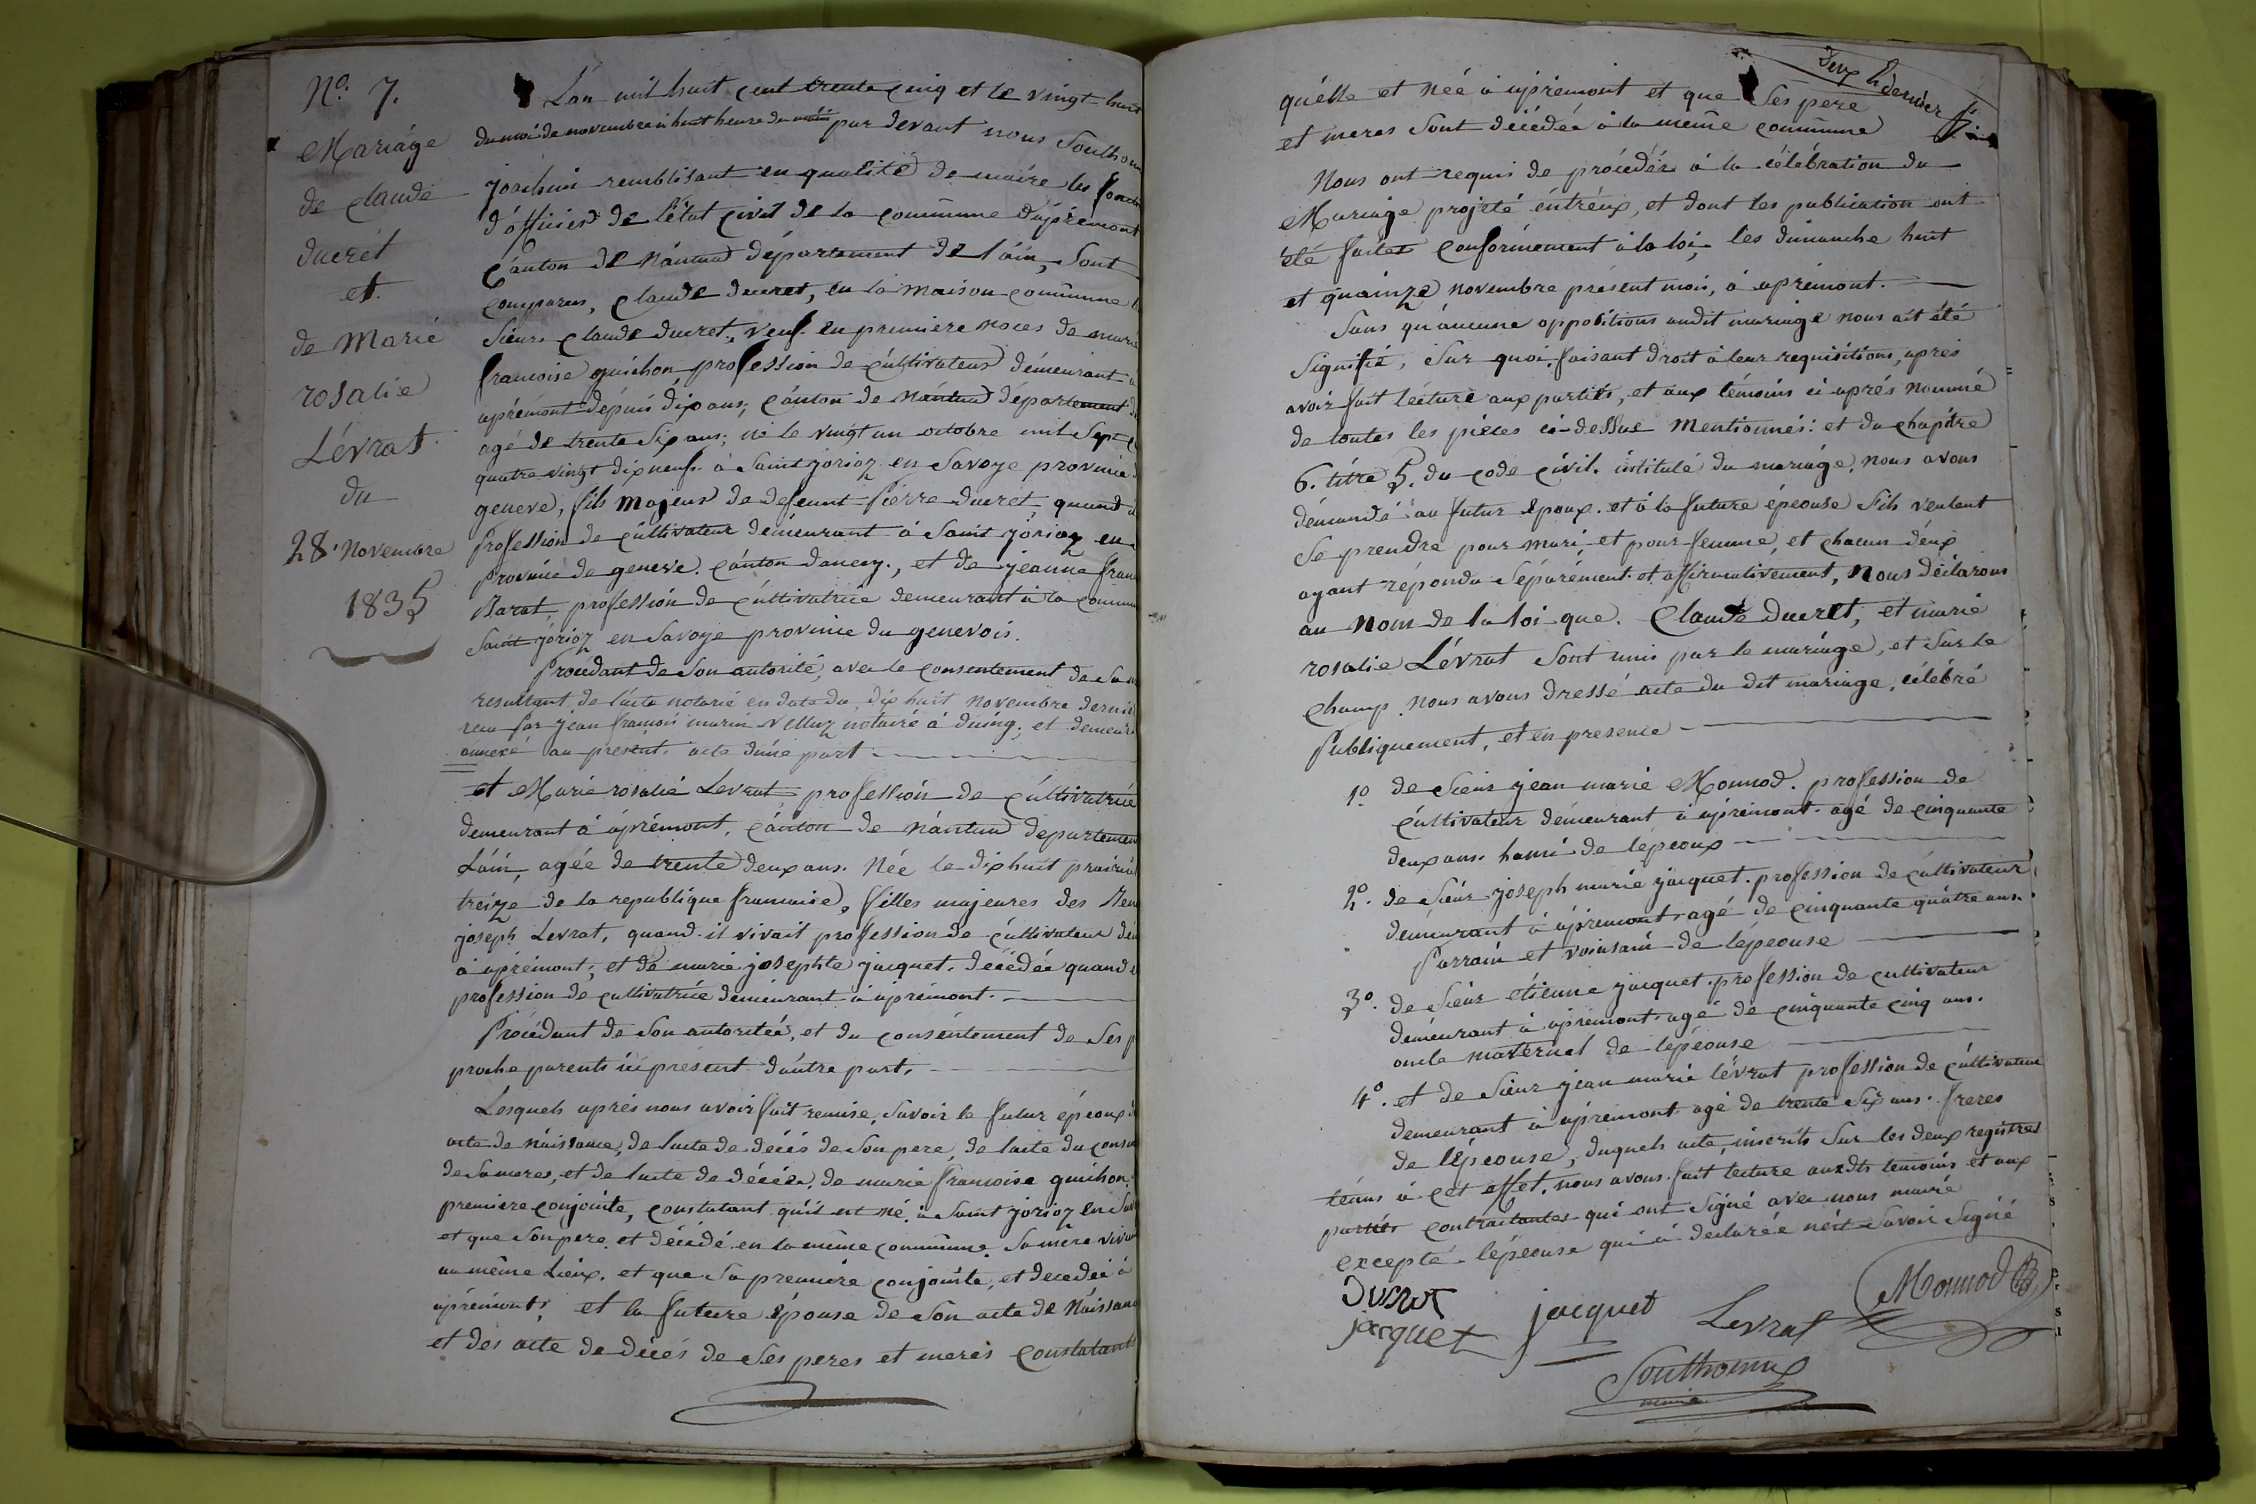 No. 7.
Mariáge
de claude
ducrét
et.
de Marié
rosalie
Lévrat.
du
28. Novembre
1835
L'an mil huit cent trente cinq et le vingt huit
du moi de novembre à huit heure du par devant nous Southon
joachim remblisant en qualité de maire les fonct
d'officier de l'état civil de la commune d'aprémont
Canton de Nantua département de l'áin, Sont
comparus, Claude ducret, en la Maison commune
Sieur Claude ducret, veuf en première noces de marie
francoise guichon profession de cultivateur démeurant à
aprémont depuis dix ans, cánton de Nántua département d
agé de trente Six ans, né le vingt un octobre mil Sept c
quatre vingt dix neuf. à Saint jorioz en Savoye province
geneve, fils majeur de defeunt Pierre ducret quand
Profession de cultivateur demeurant à Saint jorioz en
Province de geneve. canton danecy., et de jeanne fran
Barat, profession de cultivatrice demeurant à la commun
Saint jorioz en Savoye province du genevois.
Procédant de Son autorité, avec le consentement de Sa
resultant de l'acte notarié en date du dix huit Novembre dernie
recu par jean francois marin Velluz notairé à duing, et demeur
annexé au présent acte d'une part
et Marie rosalie Levrat, profession de cultivatrice
demeurant à aprémont, cánton de Nántua departemen
Láin, agée de trente deux ans. Née le dix huit prairia
treize de la republique francaise, filles majeures des
joseph Levrat, quand il vivait profession de cultivateur dem
à aprémont; et de marie josephte jacquet. décédée quand
profession de cultivatrice demeurant à aprémont.
Procédant de Son autoritéé, et du consentement de Ses
proche parents ici présent d'autre part,
Lesquels aprés nous avoir fait remise, Savoir le futur épeoux
acte de Naissance, de l'acte de décés de Son pere, de l'acte du cons
de Sa mere, et de l'acte de décés, de marie francoise guichon
premiere conjointe, constatant qu'il est né à Saint jorioz en Sav
et que Son pere et décédé en la même commune Sa mère viva
au même Lieux, et que Sa première conjointe, et decedéé à
aprémont, et la future épouse de Son acte de Naissan
et des acte de décés de Ses peres et meres Constatant
deux
dernier
qu'elle et Néé à aprémont et que Ses pere
et meres Sont décédéé à la même commune
Nous ont requis de procédér à la célébration du
Mariage projeté éntréux, et dont les publication ont
été faites conformement à la loi, les dimanche huit
et quainze novembre présent mois, à aprémont.
Sans qu'aucune oppositions audit mariage nous ait été
Signifié, Sur quoi, faisant droit à leur requisitions, aprés
avoir fait lécture aux partiés, et aux témoins ci aprés Nommé
de toutes les piéces ci-dessue Mentionnés: et du chapitre
6. titre 5. du code civil. intitulé du mariage. nous avons
démandé au futur époux. et à la future épeouse S'ils veulent
Se prendre pour mari, et pour femme, et chacun d'eux
ayant répondu Séparément et affirmativement, Nous déclarons
au Nom de la loi que. Claude ducret, et marie
rosalie Lévrat Sont unis par le mariáge, et Sur le
champ. nous avons dressé acte du dit mariage, célébré
Publiquement, et en presence
1o. de Sieur jean marie Monnod. profession de
cultivateur démeurant à aprémont. agé de cinquante
deux ans. de lépeoux
2o. de Sieur joseph marie jacquet. profession de cultivateur
demeurant à aprémont agé de cinquante quátre ans.
Parrain et de lépeouse
3o. de Sieur étienne jacquet. profession de cultivateur
demeurant à aprémont. agé de cinquante cinq ans.
oncle maternel de lépeouse
4o. et de Sieur jean marie lévrat profession de cultivateur
demeurant à aprémont agé de trente Six ans. freres
de lépeouse, duquels acte, inscrits Sur les deux registres
tenus à cet effet. nous avons fait lecture auxdts temoins et aux
partiés contractantes qui ont Signé avec nous mairé
excepté lépeouse qui à declarée Savoir Signé
Ducret
jacquet
jacquet
Levrat
Monnod
Southonnax
maire